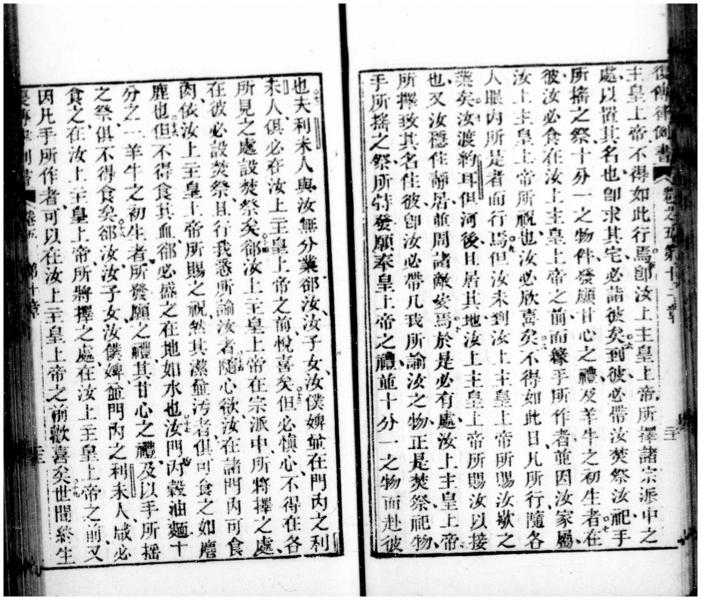 復傳律例書 卷之五 第十二章
主皇上帝不得如此行焉卽汝上主皇上帝所擇諸宗派中之
處以置其名也卽求其宅必詣彼矣到彼必帶汝焚祭汝祀手
所搖之祭十分一之物件發願甘心之禮及羊牛之初生者在
彼汝必食在汝上主皇上帝之前而緣手所作者並因汝家屬
汝上主皇上帝所祝也汝必欣喜矣不得如此日凡所行隨各
人眼內所是者而行焉但汝未到汝上主皇上帝所賜汝歇之
業矣汝渡約耳但河後且居其地汝上主皇上帝所賜汝以接
也又汝穩住靜居並周諸敵矣焉於是必有處汝上主皇上帝
所擇致其名住彼卽汝必帶凡我所諭汝之物正是焚祭祀物
手所搖之祭所特發願奉皇上帝之禮並十分一之物而赴彼
也夫利未人與汝無分業郤汝汝子女汝僕婢並在門內之利
未人俱必在汝上主皇上帝之前悅喜矣但必愼心不得在各
所見之處設焚祭矣郤汝上主皇上帝在宗派中所將擇之處
在彼必設焚祭且行我悉所諭汝者隨心欲汝在諸門內可食
肉依汝上主皇上帝所賜之祝然其潔並汚者俱可食之如麞
鹿也但不得食其血郤必盛之在地如水也汝門內穀油麵十
分之一羊牛之初生者所發願之禮其甘心之禮及以手所搖
之祭俱不得食矣郤汝汝子女汝僕婢並門內之利未人咸必
食之在汝上主皇上帝所將擇之處在汝上主皇上帝之前又
因凡手所作者可以在汝上主皇上帝之前歡喜矣世間終生
卷五 第十章 二三